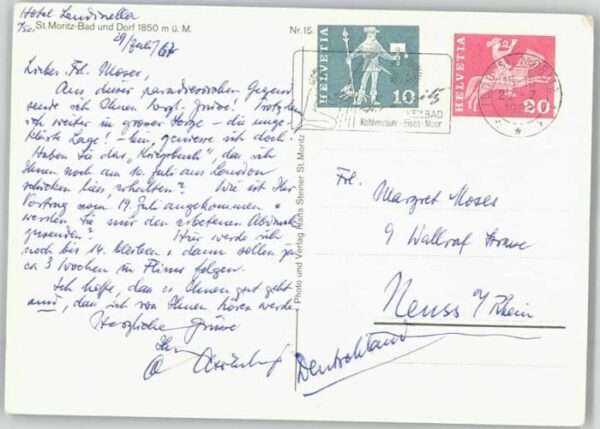 Hotel Laudinella
St. Moritz-Bad und Dorf 1850 m ü. M.
29/Juli/67
Nr. 15
Lieber Frl. Moses,
Aus dieser paradiesischen Gegend
sende ich Ihnen herzl. Grüsse! Trotzdem
ich weiter in grosser Sorge - die unge
klärte Lage! - bin, geniesse ich doch.
Haben Sie das "Kriegsbuch", das ich
Ihnen noch am 10. Juli aus London
schicken liess, erhalten? Wie ist Ihr
Vortrag vom 19. Juli angekommen &
werden Sie mir den erbetenen
senden? Hier werde ich
noch bis 14. bleiben & dann sollen ja
ca 3 Wochen in Flims folgen.
Ich hoffe, dass es Ihnen gut geht
und, dass ich von Ihnen hören werde
Herzliche Grüsse
Ihr
Photo und Verlag Hans Steiner St. Moritz
HELVETIA
10
HELVETIA
20
BAD
Kohlensäure-Eisen-Moor
Frl.
Margret Moses
9 Wallraf Strasse
Neuss a/Rhein
Deutschland